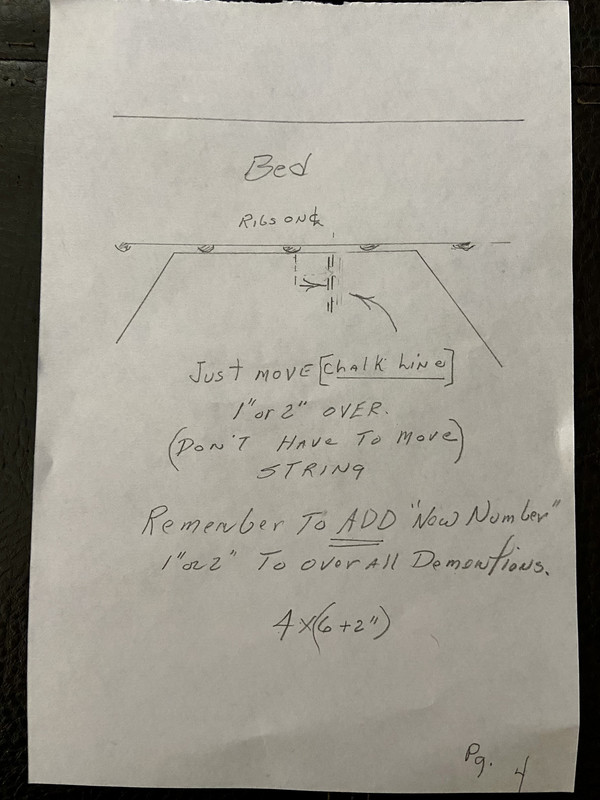 Bed
RIBS ON ℄
Just MOVE [Chalk Line]
1" or 2" OVER.
(DON'T HAVE TO MOVE)
STRING
Remember To ADD "New Number"
1" or 2" To over All Demontions.
4 x (6 + 2")
Pg. 4